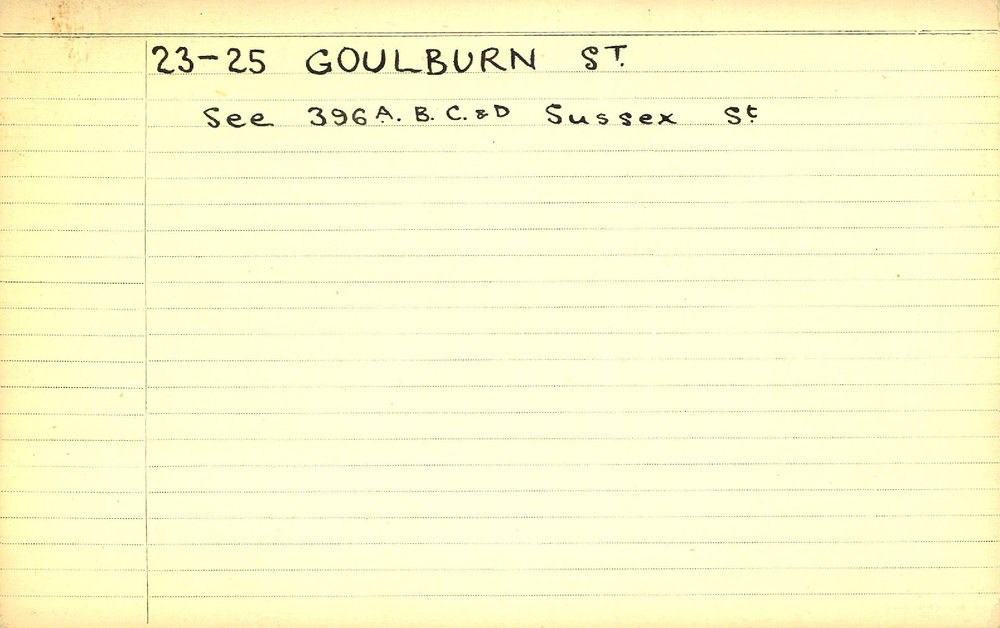 23-25 GOULBURN ST.
See 396 A. B. C. & D Sussex St